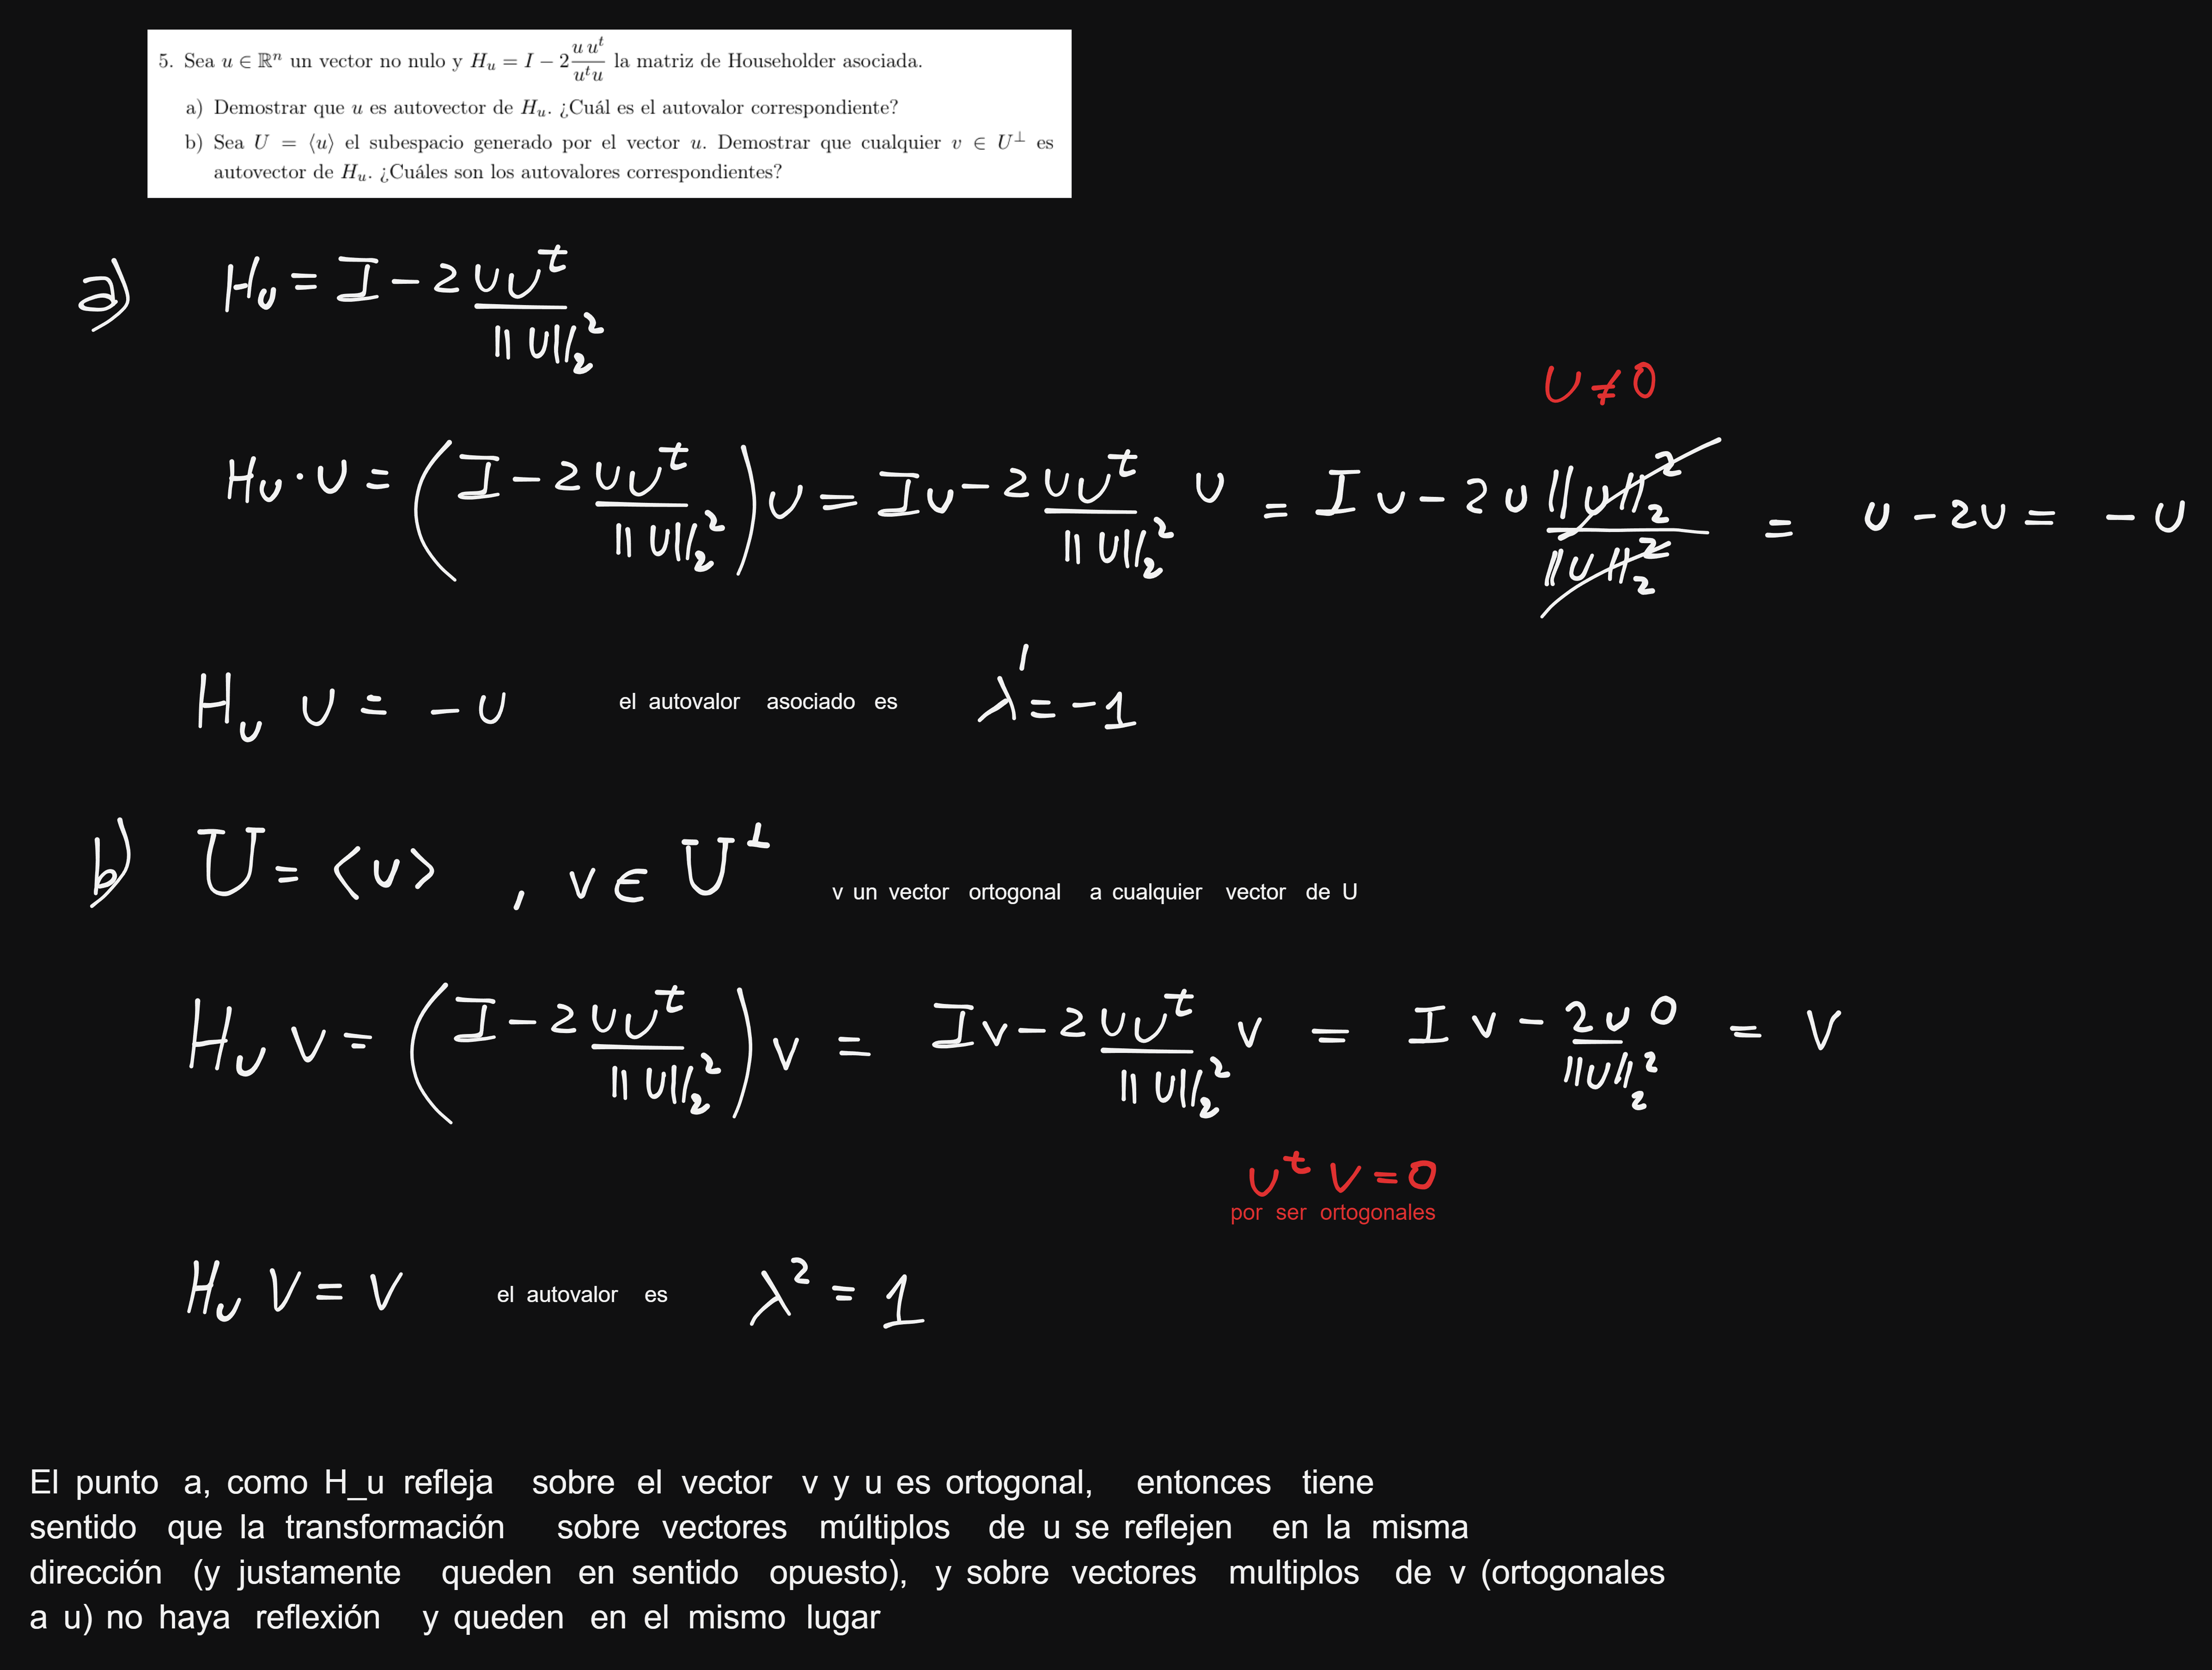 5. Sea u ∈ ℝⁿ un vector no nulo y H_u = I − 2 (u uᵗ)/(uᵗu) la matriz de Householder asociada.
a) Demostrar que u es autovector de H_u. ¿Cuál es el autovalor correspondiente?
b) Sea U = ⟨u⟩ el subespacio generado por el vector u. Demostrar que cualquier v ∈ U^⊥ es
autovector de H_u. ¿Cuáles son los autovalores correspondientes?
a) H_u = I − 2 (u uᵗ)/‖u‖₂²
u ≠ 0
H_u · u = (I − 2 (u uᵗ)/‖u‖₂²) u = I u − 2 (u uᵗ)/‖u‖₂² u = I u − 2 u ‖u‖₂²/‖u‖₂² = u − 2u = − u
H_u u = − u el autovalor asociado es λ¹ = −1
b) U = ⟨u⟩ , v ∈ U^⊥ v un vector ortogonal a cualquier vector de U
H_u v = (I − 2 (u uᵗ)/‖u‖₂²) v = I v − 2 (u uᵗ)/‖u‖₂² v = I v − (2 u 0)/‖u‖₂² = v
uᵗ v = 0
por ser ortogonales
H_u v = v el autovalor es λ² = 1
El punto a, como H_u refleja sobre el vector v y u es ortogonal, entonces tiene
sentido que la transformación sobre vectores múltiplos de u se reflejen en la misma
dirección (y justamente queden en sentido opuesto), y sobre vectores multiplos de v (ortogonales
a u) no haya reflexión y queden en el mismo lugar